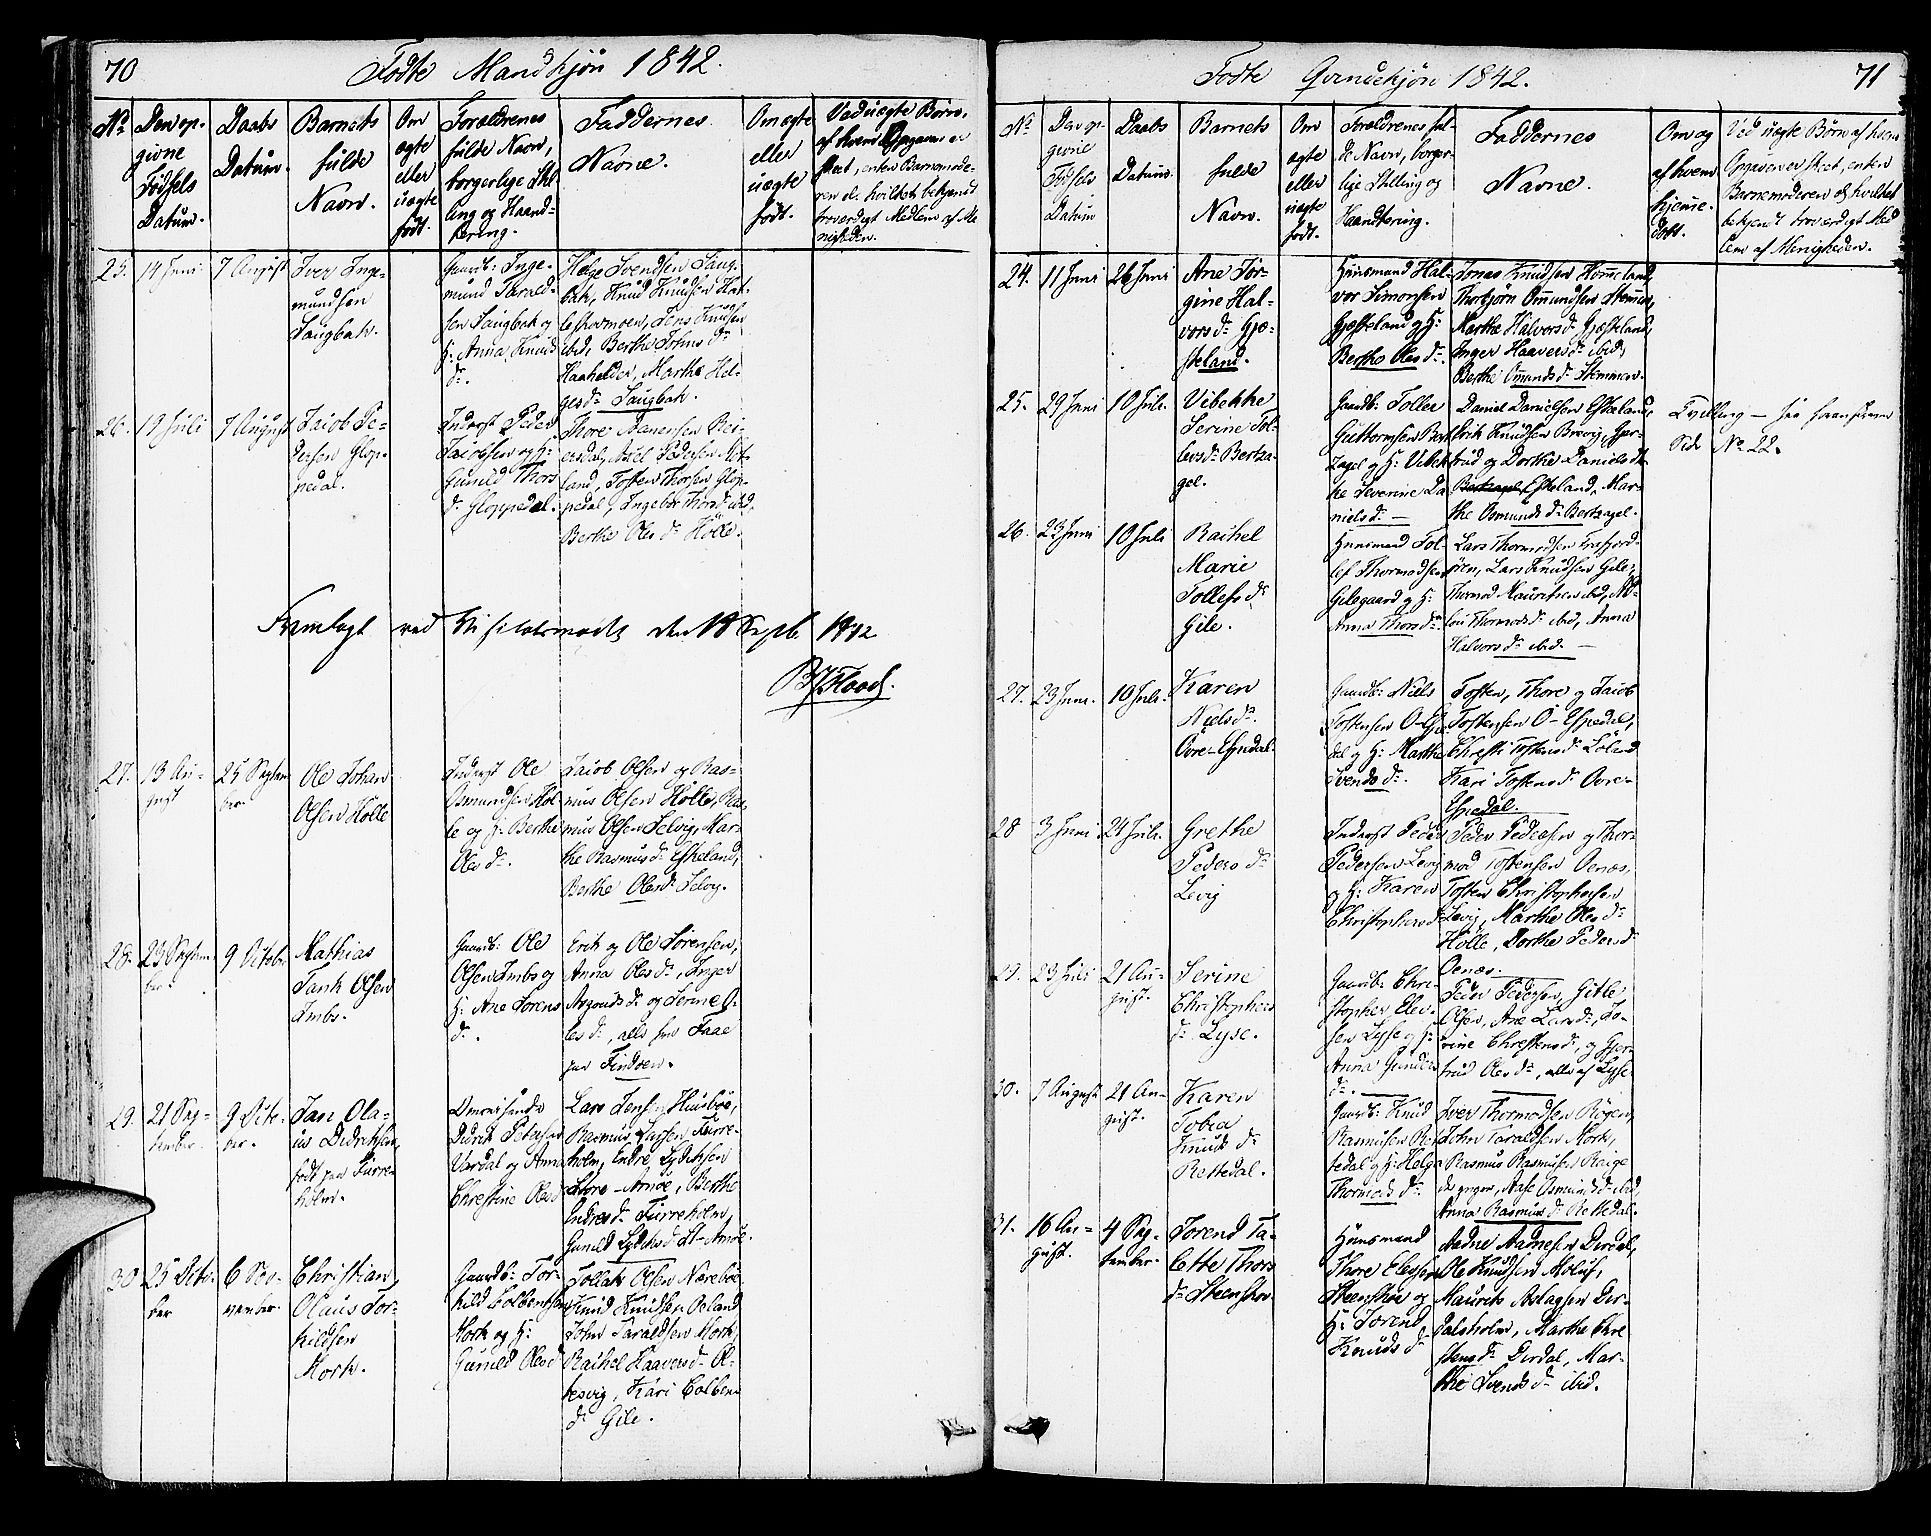 70
Fødte Mandkjøn 1842.
No
Den op-
givne
Fødsels
Datum.
Daabs
Datum.
Barnets
fulde
Navn.
Om
ægte
eller
uægte
født.
Forældrenes
fulde Navn,
borgerlige Stil-
ling og Haand-
tering.
Faddernes
Navne.
Om ægte
eller
uægte
født.
Ved uægte Børn,
af hvem Opgaven er
skeet, enten Barnemode-
ren el. hvilket bekjendt
troværdigt Medlem af Me-
nigheden.
25.
14 Juni
7 August
Iver Inge-
mundsen
Saugbak.
Gaardb: Inge-
mund Tarald-
sen Saugbak og
H: Anna Knuds
dr.
Helge Svendsen Saug-
bak, Knud Knudsen Hat-
leskormoen, Jens Knudsen
ibid, Berthe Johns dr
Haahelder, Marthe Hel-
ges dr Saugbak.
26.
19 Juli
7 August
Jacob Pe-
dersen Glop-
pedal.
Inderst Peder
Jacobsen og H:
Gunild Thors
dr Gloppedal.
Thore Aanensen Rei-
ersdal, Axel Pedersen Møt-
land, Tosten Thorsen Glop-
pedal, Ingebor Thors dr ibid,
Berthe Oles dr Hølle.
Fremlagt ved Visitatsmødet den 18 Septb 1842
27.
13 Au-
gust
25 Septem
ber.
Ole Johan
Olsen Hölle
Inderst Ole
Osmundsen Höl-
le og H: Berthe
Oles dr.
Jacob Olsen og Ras-
mus Olsen Hölle, Ras-
mus Olsen Selvig, Mar-
the Rasmus dr Eskeland,
Berthe Oles dr Selvig.
28.
23 Septem
ber.
9 October
Mathias
Tank Olsen
Imbs.
Gaardb: Ole
Olsen Imbs og
H: Ane Sørens
dr.
Erik og Ole Sørensen,
Anna Oles dr, Inger
Amunds dr og Serine O-
les dr, alle fra Faae
paa Findöen.
29.
21 Sep-
tember
9 Octo-
ber.
Jan Ola-
us Didriksen,
født paa Furre-
holm.
Didrik Petersen
Vardal og Anna
Christine Oles dr
Lars Jens: Huusböe,
Rasmus Larsen Furre-
holm, Endre Lydeksen
Store-Amöe, Berthe
Endres dr Furreholm,
Gunild Lydeks dr St-Amöe.
30
25 Octo-
ber
6 No-
vember.
Christian
Olaus Tor-
kildsen
Mork.
Gaardb: Tor-
kild Colbentsen
Mork og H:
Gunild Oles dr
Tollak Olsen Nærebøe
Knud Knudsen Oeland
John Taraldsen Mork,
Rachel Haavers dr Ol-
tesvig, Kari Colbens
dr Gile.
71
Fødte Qvindekjøn 1842.
No
Den op-
givne
Fødsels
Datum
Daabs
Datum.
Barnets
fulde
Navn.
Om
ægte
eller
uægte
født.
Forældrenes ful-
de Navn, borger-
lige Stilling og
Haandtering.
Faddernes
Navne.
Om og
af hvem
hjemme-
døbt.
Ved uægte Børn af hvem
Opgaven er skeet, enten
Barnemoderen el. hvilket
bekjendt troværdigt Med
lem af Menigheden.
24.
11 Juni
26 Juni
Ane Jör-
gine Hal-
vors dr Gjæ-
steland.
Huusmand Hal-
vor Simonsen
Gjæsteland og H:
Berthe Oles dr.
Jonas Knudsen Hommeland,
Thorbjörn Omundsen Stemmen,
Marthe Halvors dr Gjæsteland,
Inger Haavers dr ibid,
Berthe Omunds dr Stemmen.
25.
29 Juni
10 Juli
Vibekke
Serine Tol-
levs dr Bertza-
gel.
Gaardb: Toller
Guttormsen Bert
zagel og H: Vibek
ke Severine Da
niels dr.
Daniel Danielsen Eskeland,
Erik Knudsen Brevig, Gjer-
trud og Dorthe Daniels dr
Eskeland, Mar-
the Osmunds dr Bertzagel.
Tvilling
Side No 22.
26.
23 Juni
10 Juli
Rachel
Marie
Tollefs dr
Gile.
Huusmand Tol-
lef Thormodsen
Gilegaard og H:
Anna Thors dr
Lars Thormodsen Frafjord-
øren, Lars Knudsen Gile,
Thormod Mauritsen ibid, Ma-
lene Thormods dr ibid, Anna
Halvors dr ibid.
27.
23 Juni.
10 Juli.
Karen
Niels dr
Övre-Espedal
Gaardb: Niels
Tostensen Ö-Espe
dal og H: Marthe
Svends dr.
Tosten, Thore og Jacob
Tostensen Ö-Espedal,
Christi Tostens dr Löland
Kari Tostens dr Övre-
Espedal.
28
3 Juni
24 Juli.
Grethe
Peders dr
Levig
Inderst Peder
Pedersen Levig
og H: Karen
Christophers dr
Peder Pedersen og Thor-
mod Tostensen Oenæs,
Tosten Christophersen
Levig, Marthe Oles dr
Hölle, Dorthe Peders dr
Oenæs.
29.
23 Juli
21 Au-
gust.
Serine
Christophers
dr Lyse.
Gaardb: Chri-
stopher Elev-
sen Lysse og H:
Anna Gunders
dr.
Peder Pedersen, Gitle
Olsen, Ane Lars dr, Se-
rine Christens dr, og Gjer-
trud Oles dr, alle af Lyse
30.
7 August
21 Au-
gust.
Karen
Tobia
Knuds dr
Rettedal.
Gaardb: Knud
Rasmusen Ret
tedal og H: Helga
Thormods dr.
Iver Thormodsen Rögen,
John Taraldsen Mork,
Rasmus Rasmusen Raige
Aase Osmunds dr ibid,
Anna Rasmus dr Rettedal.
31.
16 Au-
gust.
4 Sep-
tember.
Torend Ta-
lette Thors
dr Steenskov
Huusmand
Thore Elevsen
Steenskov og
H: Torend
Knuds dr
Aadne Aadnesen Dirdal,
Ole Knudsen Molus,
Maurits Aslagsen Dir-
dalsholm, Marthe Chri
stens dr Dirdal, Mar-
the Svends dr ibid.